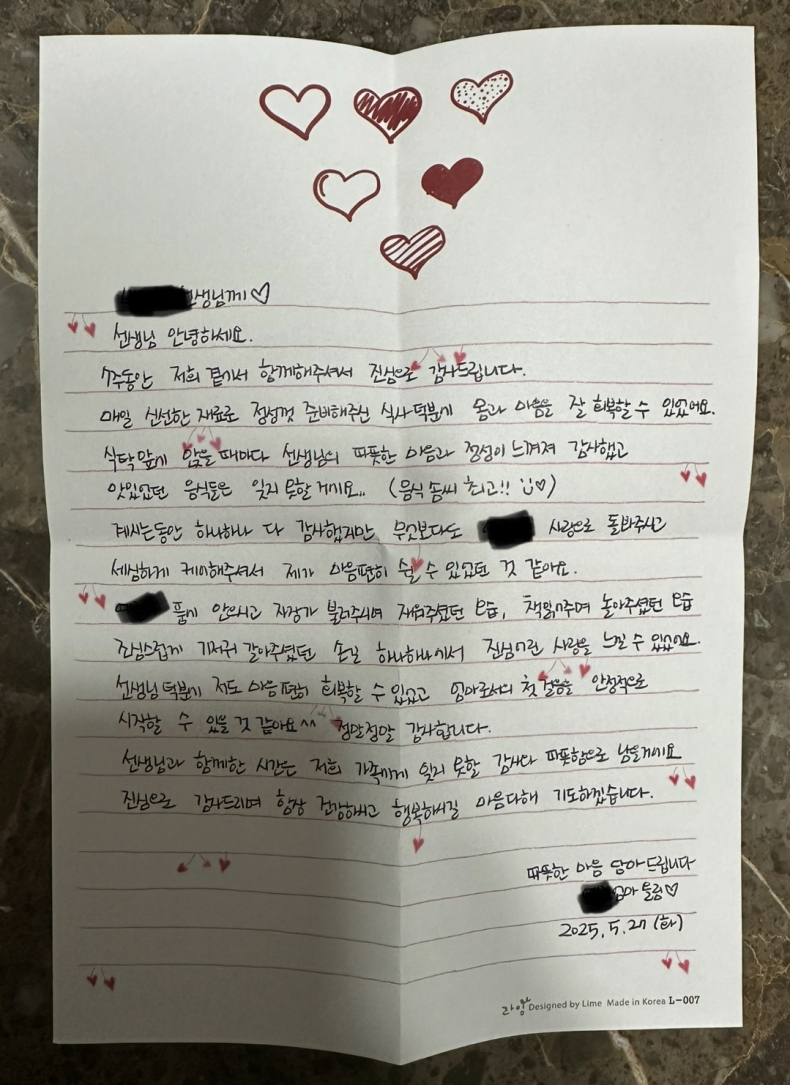 선생님께♡
선생님 안녕하세요.
7주동안 저희 곁에서 함께해주셔서 진심으로 감사드립니다.
매일 신선한 재료로 정성껏 준비해주신 식사 덕분에 몸과 마음을 잘 회복할 수 있었어요.
식탁 앞에 앉을 때마다 선생님의 따뜻한 마음과 정성이 느껴져 감사했고
맛있었던 음식들은 잊지 못할 거에요.. (음식 솜씨 최고!! ♡)
계시는동안 하나하나 다 감사했지만 무엇보다도 사랑으로 돌봐주시고
세심하게 케어해주셔서 제가 마음편히 쉴 수 있었던 것 같아요.
품에 안으시고 자장가 불러주시며 재워주셨던 모습, 책읽어주며 놀아주셨던 모습
조심스럽게 기저귀 갈아주셨던 손길 하나하나에서 진심어린 사랑을 느낄 수 있었어요.
선생님 덕분에 저도 마음 편히 회복할 수 있었고 엄마로서의 첫 걸음을 안정적으로
시작할 수 있을 것 같아요^^ 정말정말 감사합니다.
선생님과 함께한 시간은 저희 가족에게 잊지 못할 감사와 따뜻함으로 남을거에요
진심으로 감사드리며 항상 건강하시고 행복하시길 마음다해 기도하겠습니다.
따뜻한 마음 담아 드립니다
엄마 드림♡
2025. 5. 27 (화)
라임 Designed by Lime Made in Korea L-007